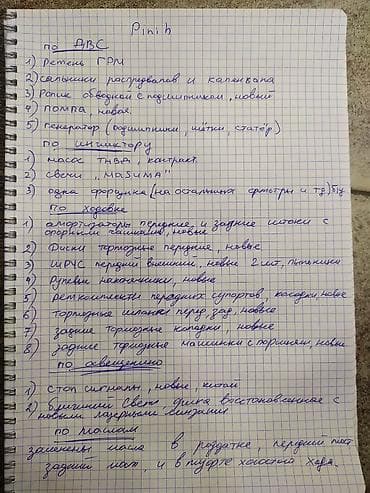 Pinih
по ДВС
1) Ремень ГРМ
2) сальники распредвалов и каленвала
3) Ролик обводной с подшипником, новый
4) помпа, новая.
5) генератор (подшипники, щётки, статор)
по инжектору
1) насос ТНВД, контракт.
2) свечи „MASUMA"
3) одна форсунка (на остальных фильтры и тд)
по ходовке
1) амортизаторы передние, и задние штоки с
опорными чашками, новые
2) Диски тормозные передние, новые
3) ШРУС передний внешний, новые 2 шт, пыльники
4) Рулевые наконечники, новые
5) Ремкомплекты передних супортов, калодки, новое
6) Тормозные шланги перед, зад, новые
7) задние тормозные колодки, новые
8) задние тормозные машинки с поршням, новые
по освещению
1) Стоп сигналы, новые, китай
2) ближний свет, фика восстоновленное с
новыми лазерными линзами
по маслам
заменены масла в роздатке, передний мост
задний мост, и в муфте холостого хода.